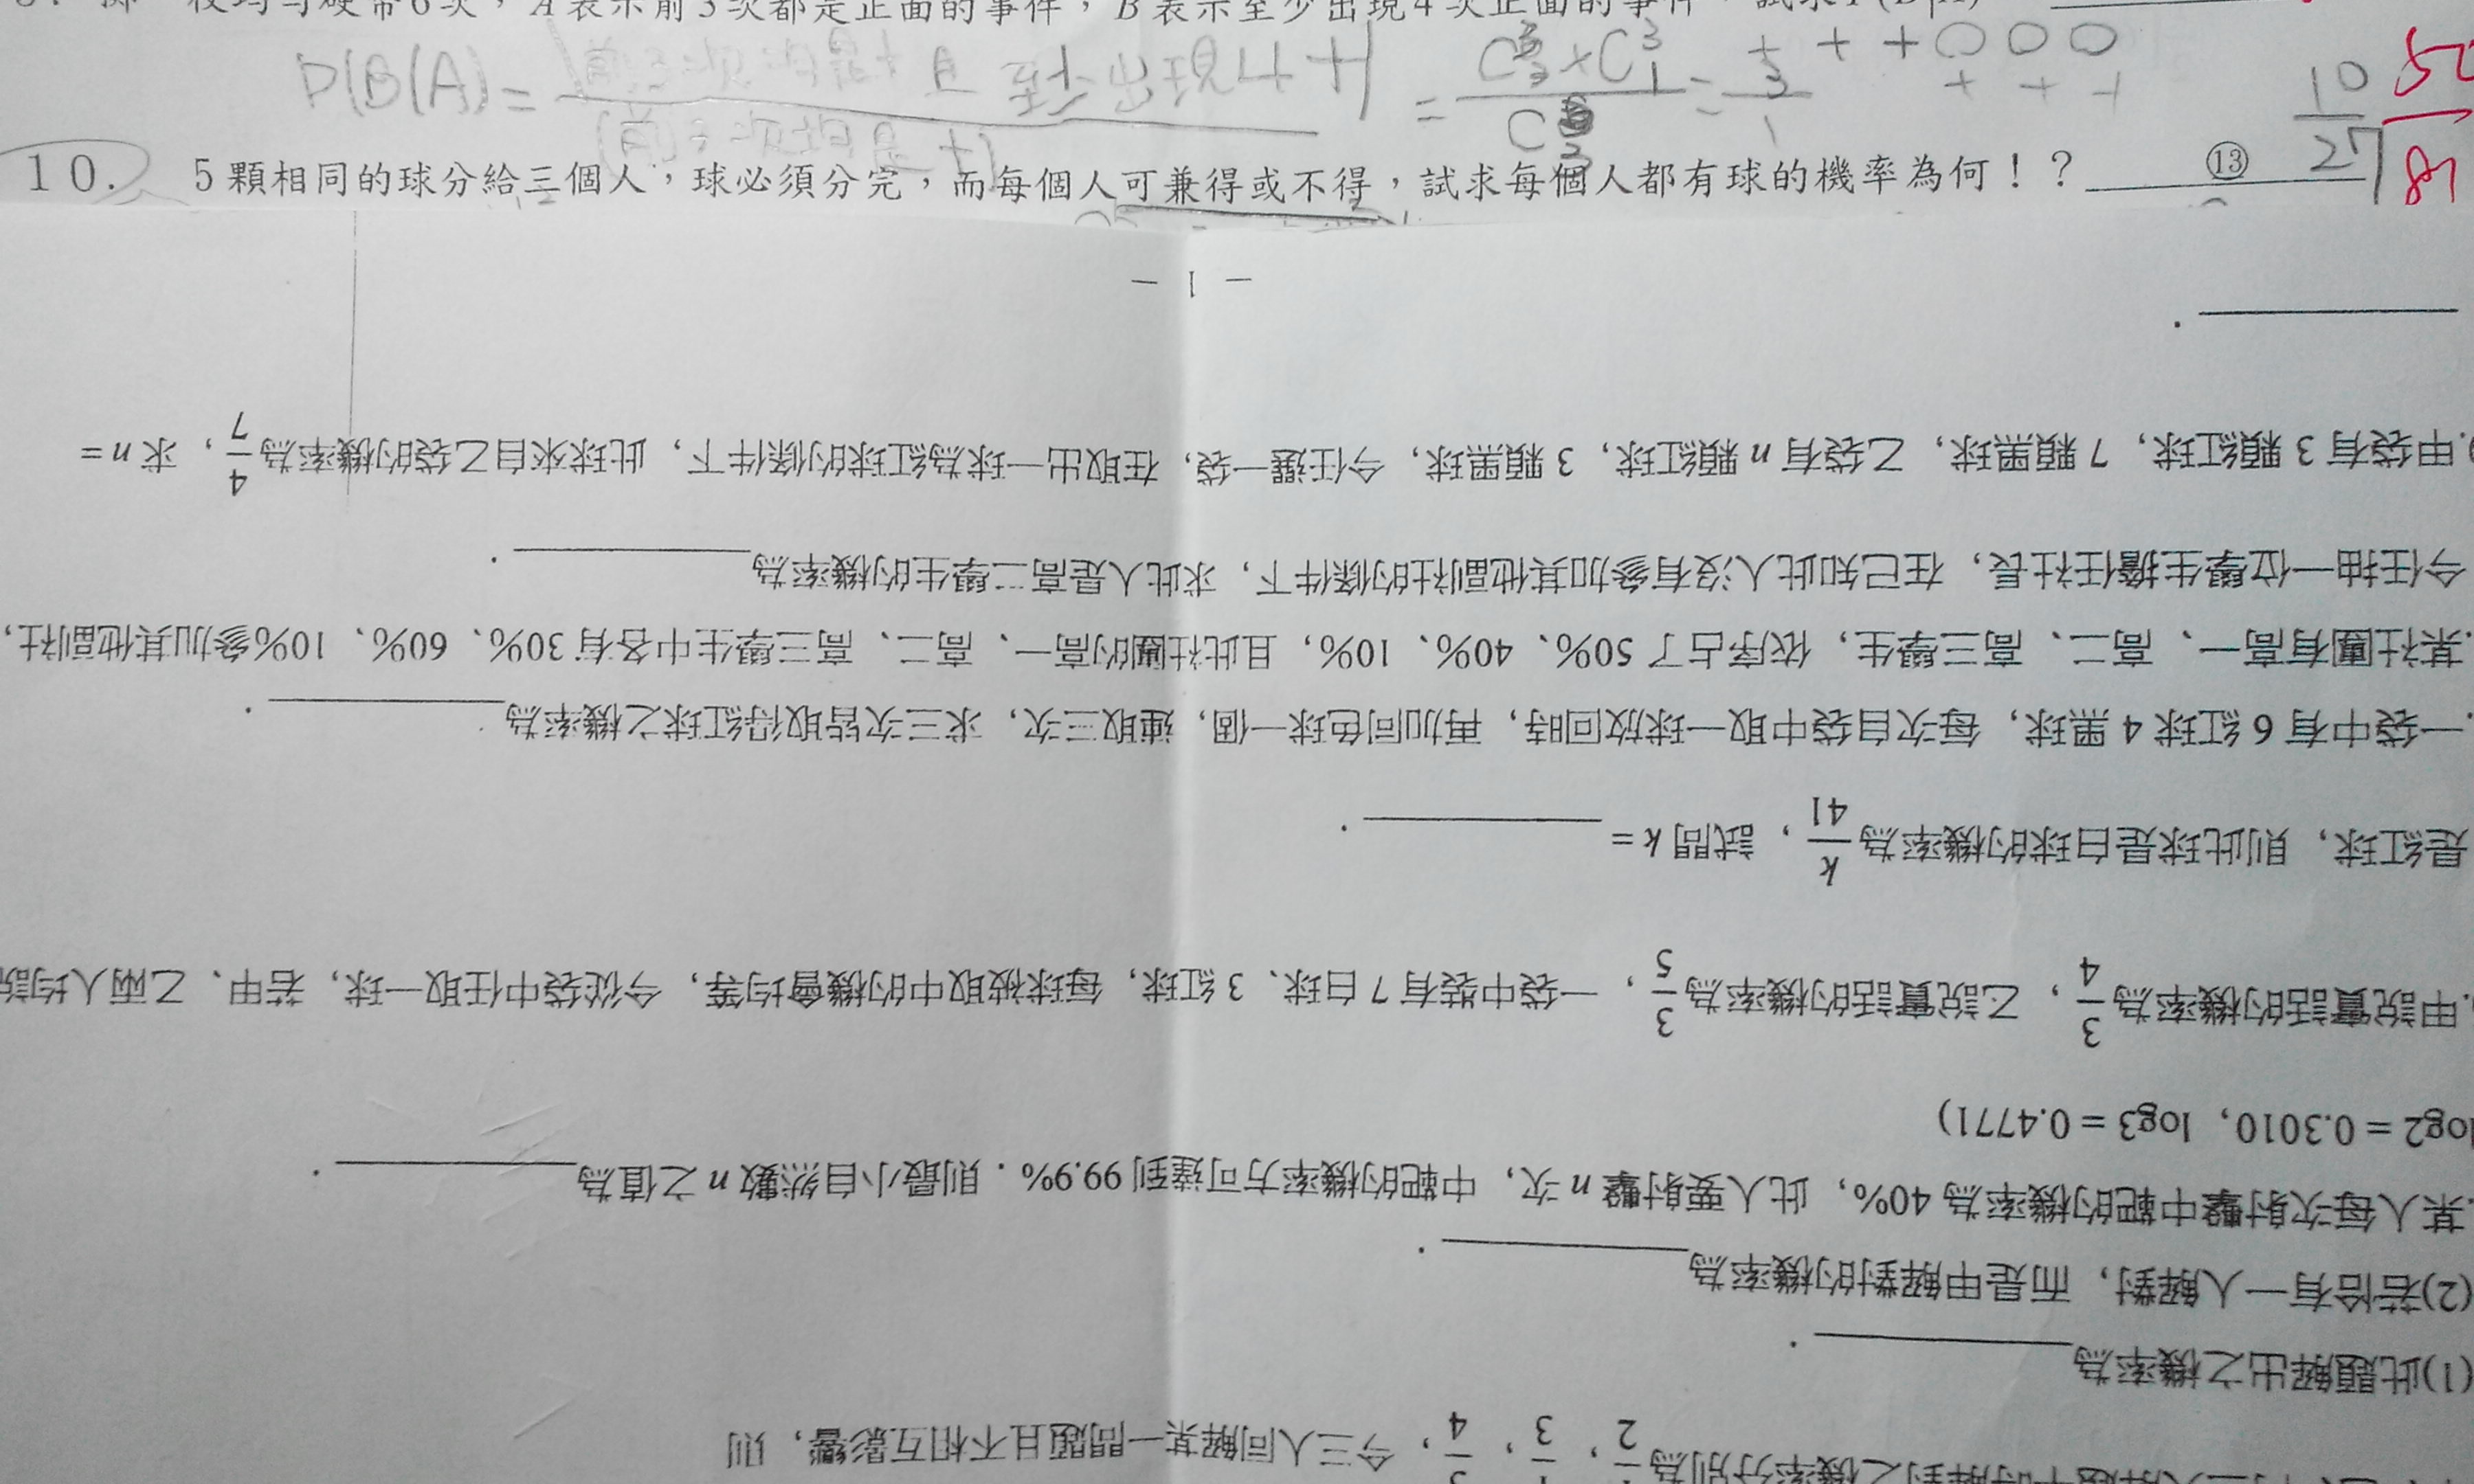 枚均勻硬幣6次，A表示前3次都是正面的事件，B表示至少出現4次正面的事件，試求P(B|A)
P(B(A) = 前三次均是+且至少出現4+ / (前三次均是+) = C × C³₁ / C = + + + ○ ○ ○
+ + +
10. 5顆相同的球分給三個人，球必須分完，而每個人可兼得或不得，試求每個人都有球的機率為何！？ ⑬ 10/27 25/81
今三人同解某一問題且不相互影響，則
(1)此題解出之機率為 .
(2)若恰有一人解對，而是甲解對的機率為 .
.某人每次射擊中靶的機率為 40%，此人要射擊 n 次，中靶的機率方可達到 99.9%．則最小自然數 n 之值為 .
log2 = 0.3010，log3 = 0.4771)
.甲說實話的機率為 3/4，乙說實話的機率為 3/5，一袋中裝有 7 白球、3 紅球，每球被取中的機會均等，今從袋中任取一球，若甲、乙兩人均說
是紅球，則此球是白球的機率為 k/41，試問 k = .
.一袋中有 6 紅球 4 黑球，每次自袋中取一球放回時，再加同色球一個，連取三次，求三次皆取得紅球之機率為 .
.某社團有高一、高二、高三學生，依序占了 50%、40%、10%，且此社團的高一、高二、高三學生中各有 30%、60%、10%參加其他副社，
今任抽一位學生擔任社長，在已知此人沒有參加其他副社的條件下，求此人是高二學生的機率為 .
.甲袋有 3 顆紅球，7 顆黑球，乙袋有 n 顆紅球，3 顆黑球，今任選一袋，在取出一球為紅球的條件下，此球來自乙袋的機率為 4/7，求 n =
.
− 1 −